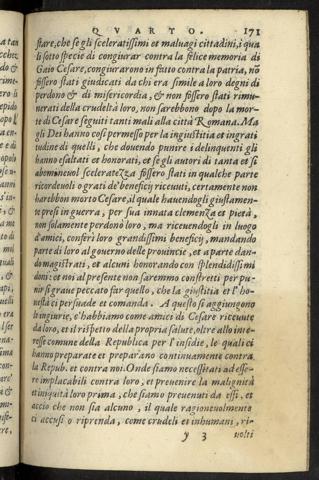 QVARTO. 171
stare, che se gli sceleratissimi et maluagi cittadini, i qua
li sotto specie di congiurar contra la felice memoria di
Gaio Cesare, congiurarono in fatto contra la patria, nõ
fossero stati giudicati da chi era simile a loro degni di
perdono & di misericordia, & non fossero stati rimu-
nerati della crudeltà loro, non sarebbono dopo la mor-
te di Cesare seguiti tanti mali alla città Romana. Ma
gli Dei hanno così permesso per la ingiustitia et ingrati
tudine di quelli, che douendo punire i delinquenti gli
hanno esaltati et honorati, et se gli autori di tanta et si
abomineuol sceleratezza fossero stati in qualche parte
ricordeuoli o grati de' beneficij riceuuti, certamente non
harebbon morto Cesare, il quale hauendogli giustamen-
te presi in guerra, per sua innata clemenza et pietà,
non solamente perdonò loro, ma riceuendogli in luogo
d'amici, conferì loro grandissimi beneficij, mandando
parte di loro al gouerno delle prouincie, et a parte dan-
do magistrati, et alcuni honorando con splendidissimi
doni: et noi al presente non saremmo constretti per pu-
nir si graue peccato far quello, che la giustitia et l'ho-
nestà ci persuade et comanda. A questo si aggiungono
le ingiurie, c'habbiamo come amici di Cesare riceuute
da loro, et il rispetto della propria salute, oltre allo inte-
resse comune della Republica per l'insidie, le quali ci
hanno preparate et preparano continuamente contra
la Repub. et contra noi. Onde siamo necessitati ad esse-
re implacabili contra loro, et preuenire la malignità
et iniquità loro prima, che siamo preuenuti da essi, et
accio che non sia alcuno, il quale ragioneuolmente
ci accusi o riprenda, come crudeli et inhumani, ri-
y 3 uolti